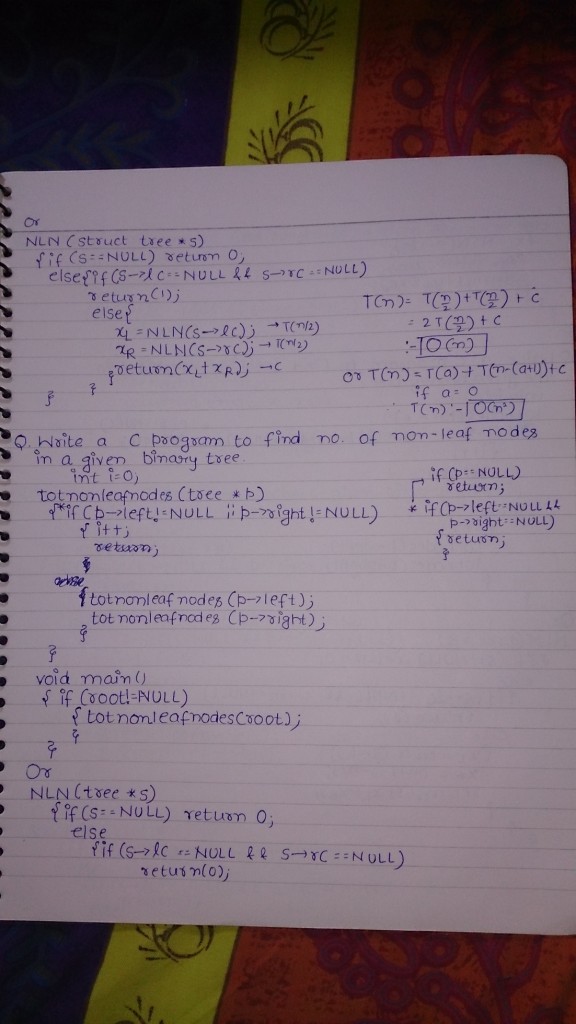 Or
NLN (struct tree *s)
{ if (s==NULL) return 0,
else{if(s->lc==NULL && s->rc==NULL)
return(1);
else{
xL = NLN(s->lc); → T(n/2)
xR = NLN(s->rc); → T(n/2)
}return(xL+xR); → c
}
}
T(n)= T(n/2)+T(n/2) + c
= 2T(n/2)+c
:- O(n)
or T(n)=T(a)+T(n-(a+1))+c
if a=0
T(n) :- O(n²)
Q. Write a C program to find no. of non-leaf nodes
in a given binary tree.
int i=0,
totnonleafnodes (tree *p)
{*if(p->left!=NULL || p->right!=NULL)
{ i++;
return;
}
else
{totnonleafnodes(p->left);
totnonleafnodes(p->right);
}
}
if(p==NULL)
return;
* if(p->left==NULL &&
p->right==NULL)
{return;
}
void main()
{ if (root!=NULL)
{ totnonleafnodes(root);
}
}
Or
NLN(tree *s)
{if(s==NULL) return 0;
else
{if (s->lc ==NULL && s->rc==NULL)
return(0);